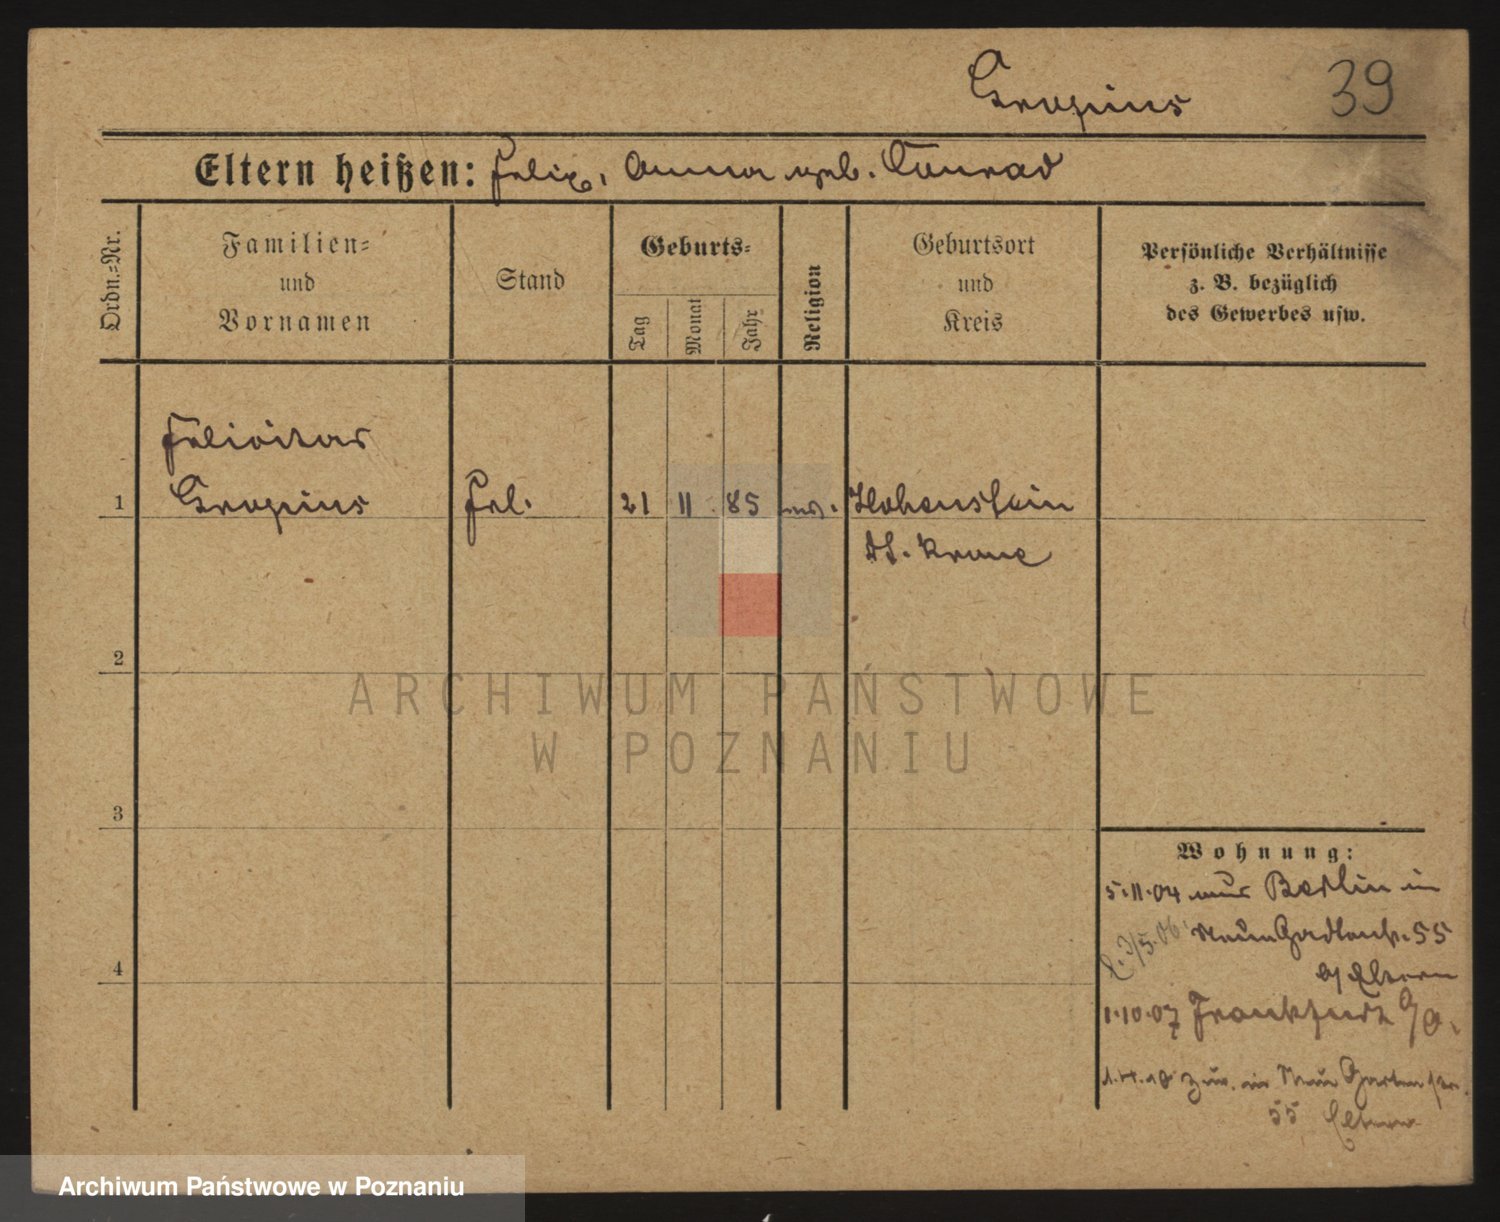 Gropius 39
Eltern heißen: Felix, Anna geb. Conrad
Ordn.=Nr.
Familien=
und
Vornamen
Stand
Geburts=
Tag
Monat
Jahr
Religion
Geburtsort
und
Kreis
Persönliche Verhältnisse
z. B. bezüglich
des Gewerbes usw.
Felicitas
1 Gropius Frl. 21 11. 85 Hohenstein
Dt. Krone
2
3
4
Wohnung:
5.11.04 aus Berlin in
3/5.06. Neue Gartenstr. 55
b/ Eltern
1.10.07 Frankfurt a/O.
zur. in Neue Gartenstr.
55 Eltern
ARCHIWUM PAŃSTWOWE
W POZNANIU
Archiwum Państwowe w Poznaniu